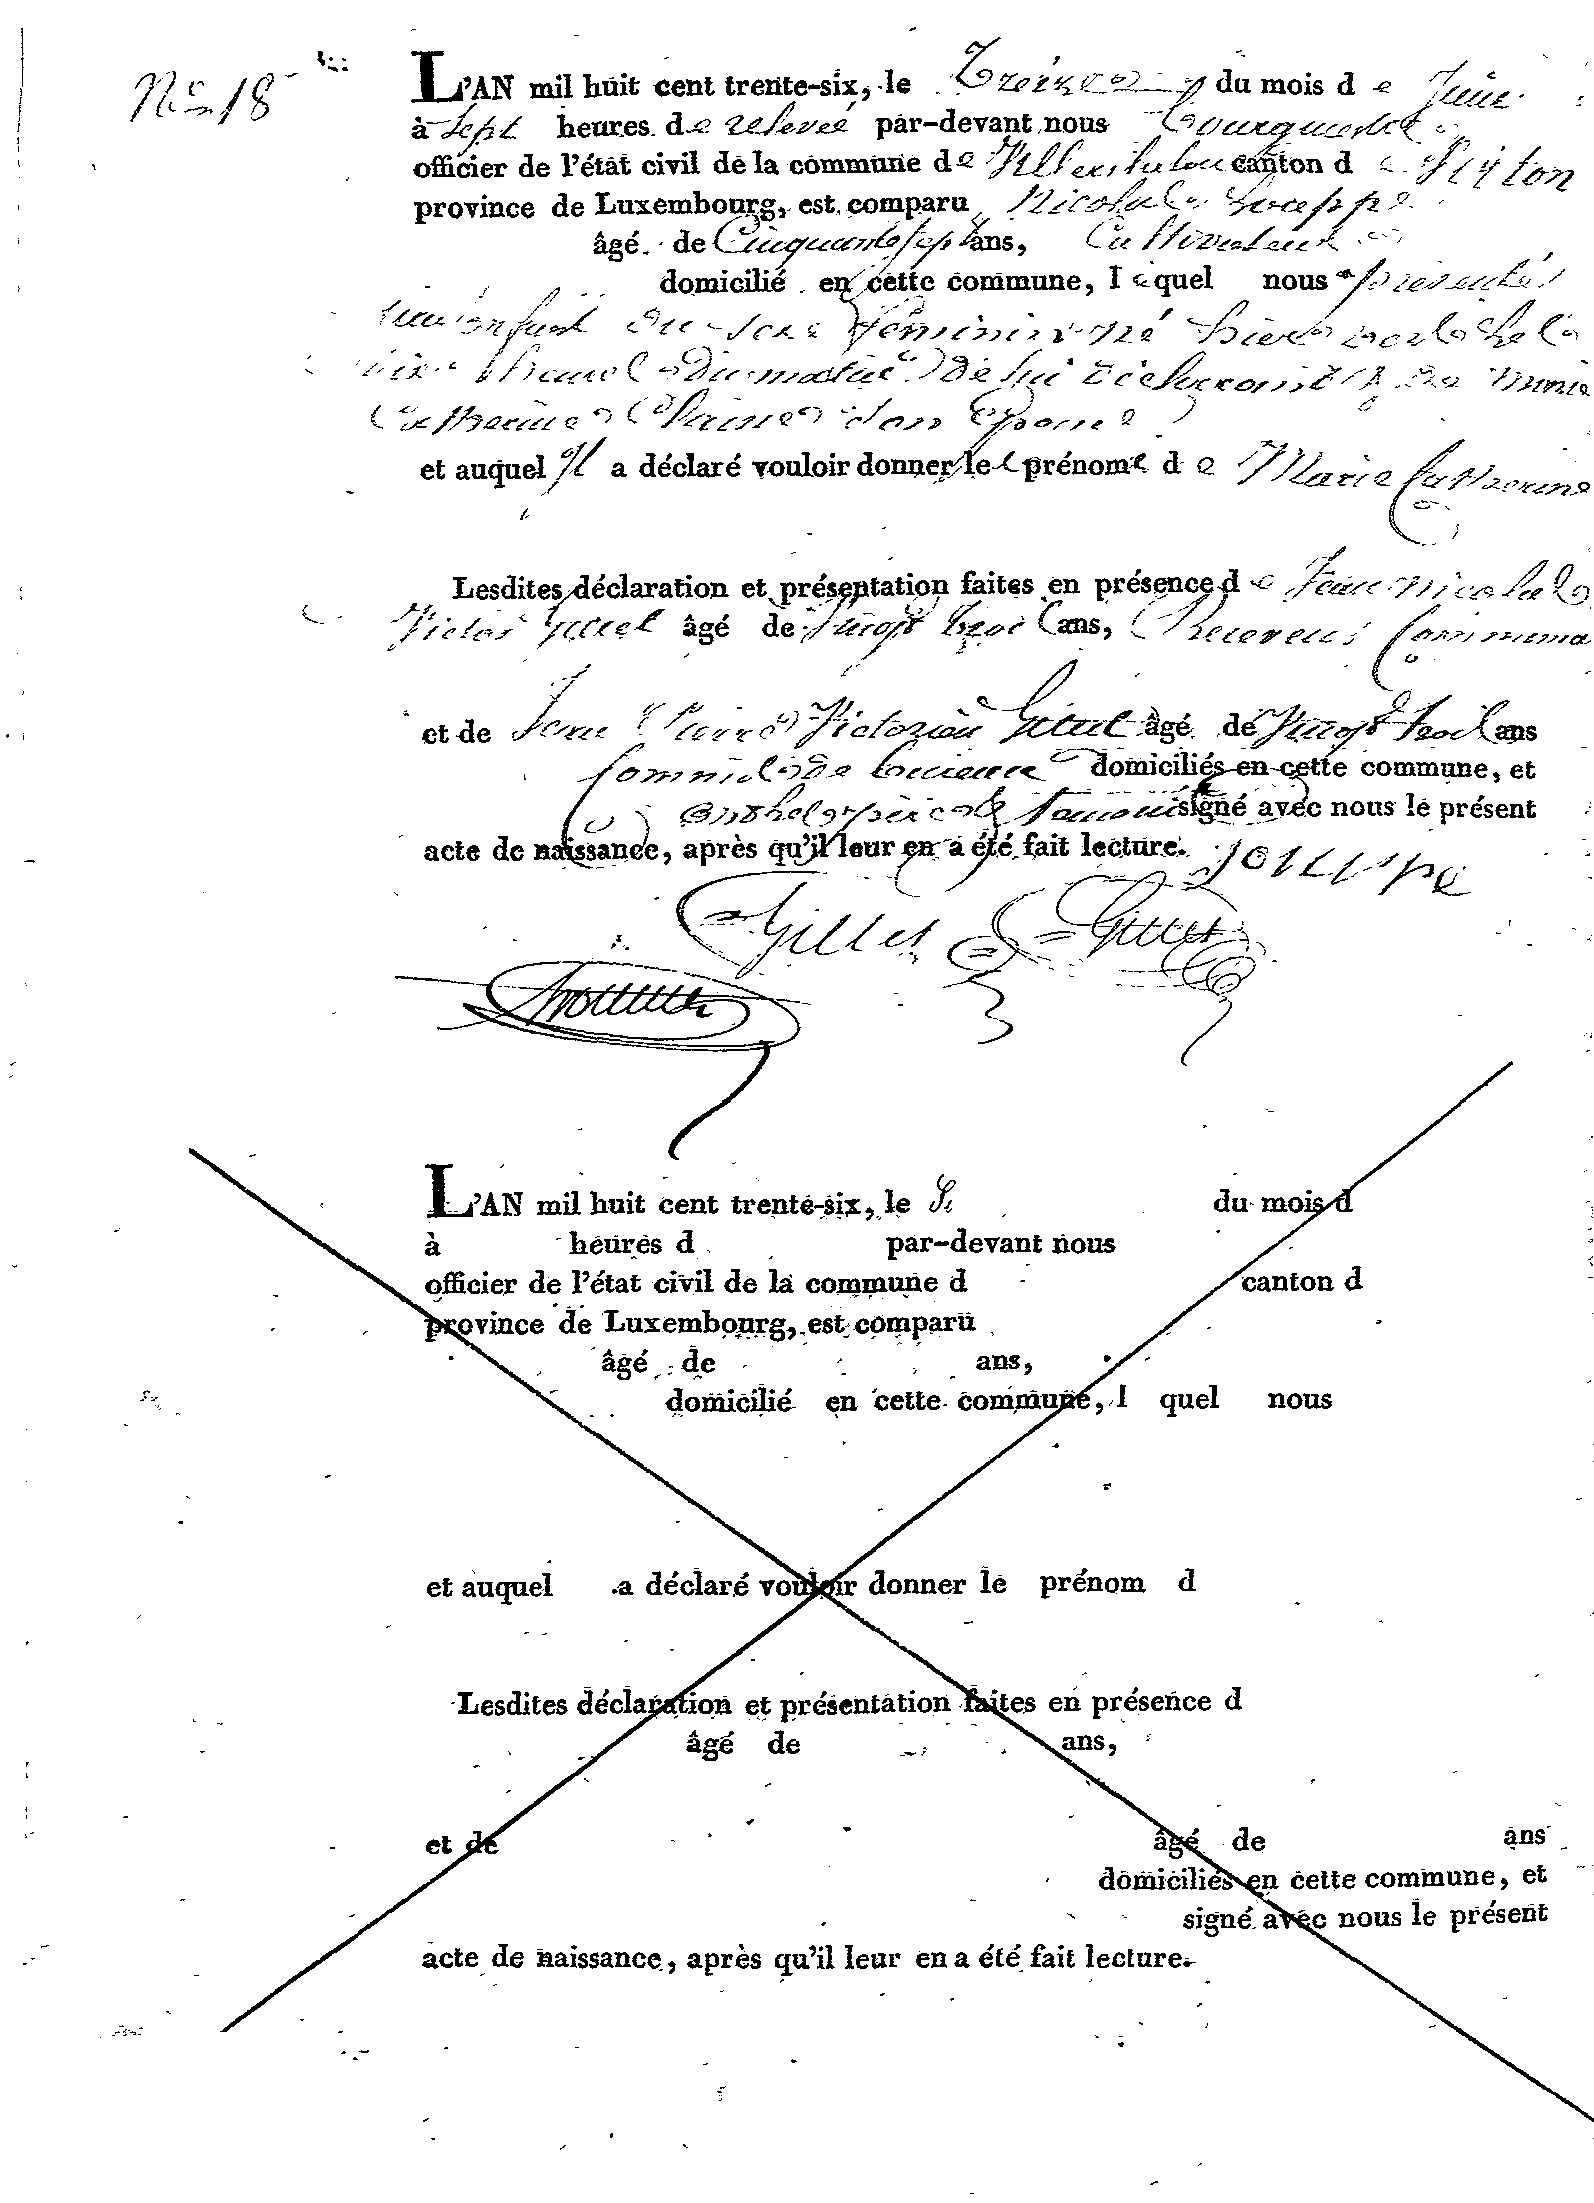 No 18
L'AN mil huit cent trente-six, le Treize du mois de Juin
à Sept heures de relevée par-devant nous Bourguemestre
officier de l'état civil de la commune de canton de Virton
province de Luxembourg, est comparu Nicolas Jouppe
âgé de Cinquante Sept ans, Cultivateur
domicilié en cette commune, lequel nous a présenté
un enfant du sexe féminin né hier a
heures du matin de lui déclarant & de Marie
Catherine son Epouse
et auquel il a déclaré vouloir donner le prénom de Marie Catherine
Lesdites déclaration et présentation faites en présence de Jean Nicolas
Victor Gillet âgé de Vingt trois ans, Receveur Communal
et de Jean Pierre Victorien Gillet âgé de Vingt trois ans
Commis de domiciliés en cette commune, et
ont les père & témoins signé avec nous le présent
acte de naissance, après qu'il leur en a été fait lecture. Jouppe
Gillet Gillet
L'AN mil huit cent trente-six, le du mois d
à heures d par-devant nous
officier de l'état civil de la commune d canton d
province de Luxembourg, est comparu
âgé de ans,
domicilié en cette commune, l quel nous
et auquel a déclaré vouloir donner le prénom d
Lesdites déclaration et présentation faites en présence d
âgé de ans,
et de âgé de ans
domiciliés en cette commune, et
signé avec nous le présent
acte de naissance, après qu'il leur en a été fait lecture.